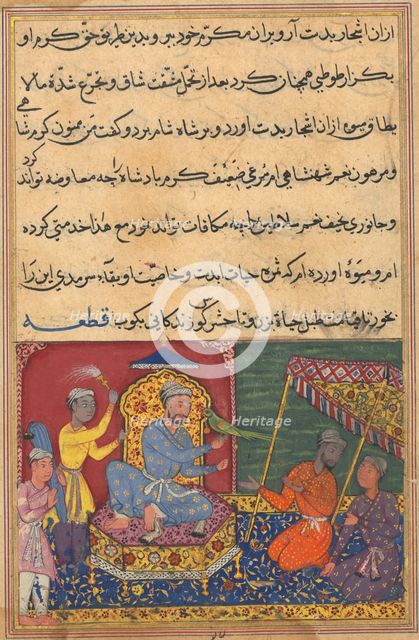 ازان اشجار بدست آرو بران مکرمه خود ببر و بدین طریق حق کرم او
بکزار طوطی همچنان کرد بعد از تحمل مشقت شاق و تجرع شده مالا
بطاق میوه ازان اشجار بدست اورد و بر شاه شام برد و گفت من ممنون کرم شا
و مرهون نعم شهنشاهی ام مرغی ضعیف کرم پادشاه را چه معاوضه تواند کرد
و جانوری نحیف نعم سلاطین را چه مکافات تواند نمود مع هذا خدمتی کرده
ام و میوۀ اورده ام که ثمره حیات ابدست و خاصیت او بقاء سرمدی این را
بخور تا
قطعه
Heritage
Heritage
Heritage
Heritage
Heritage
Heritage